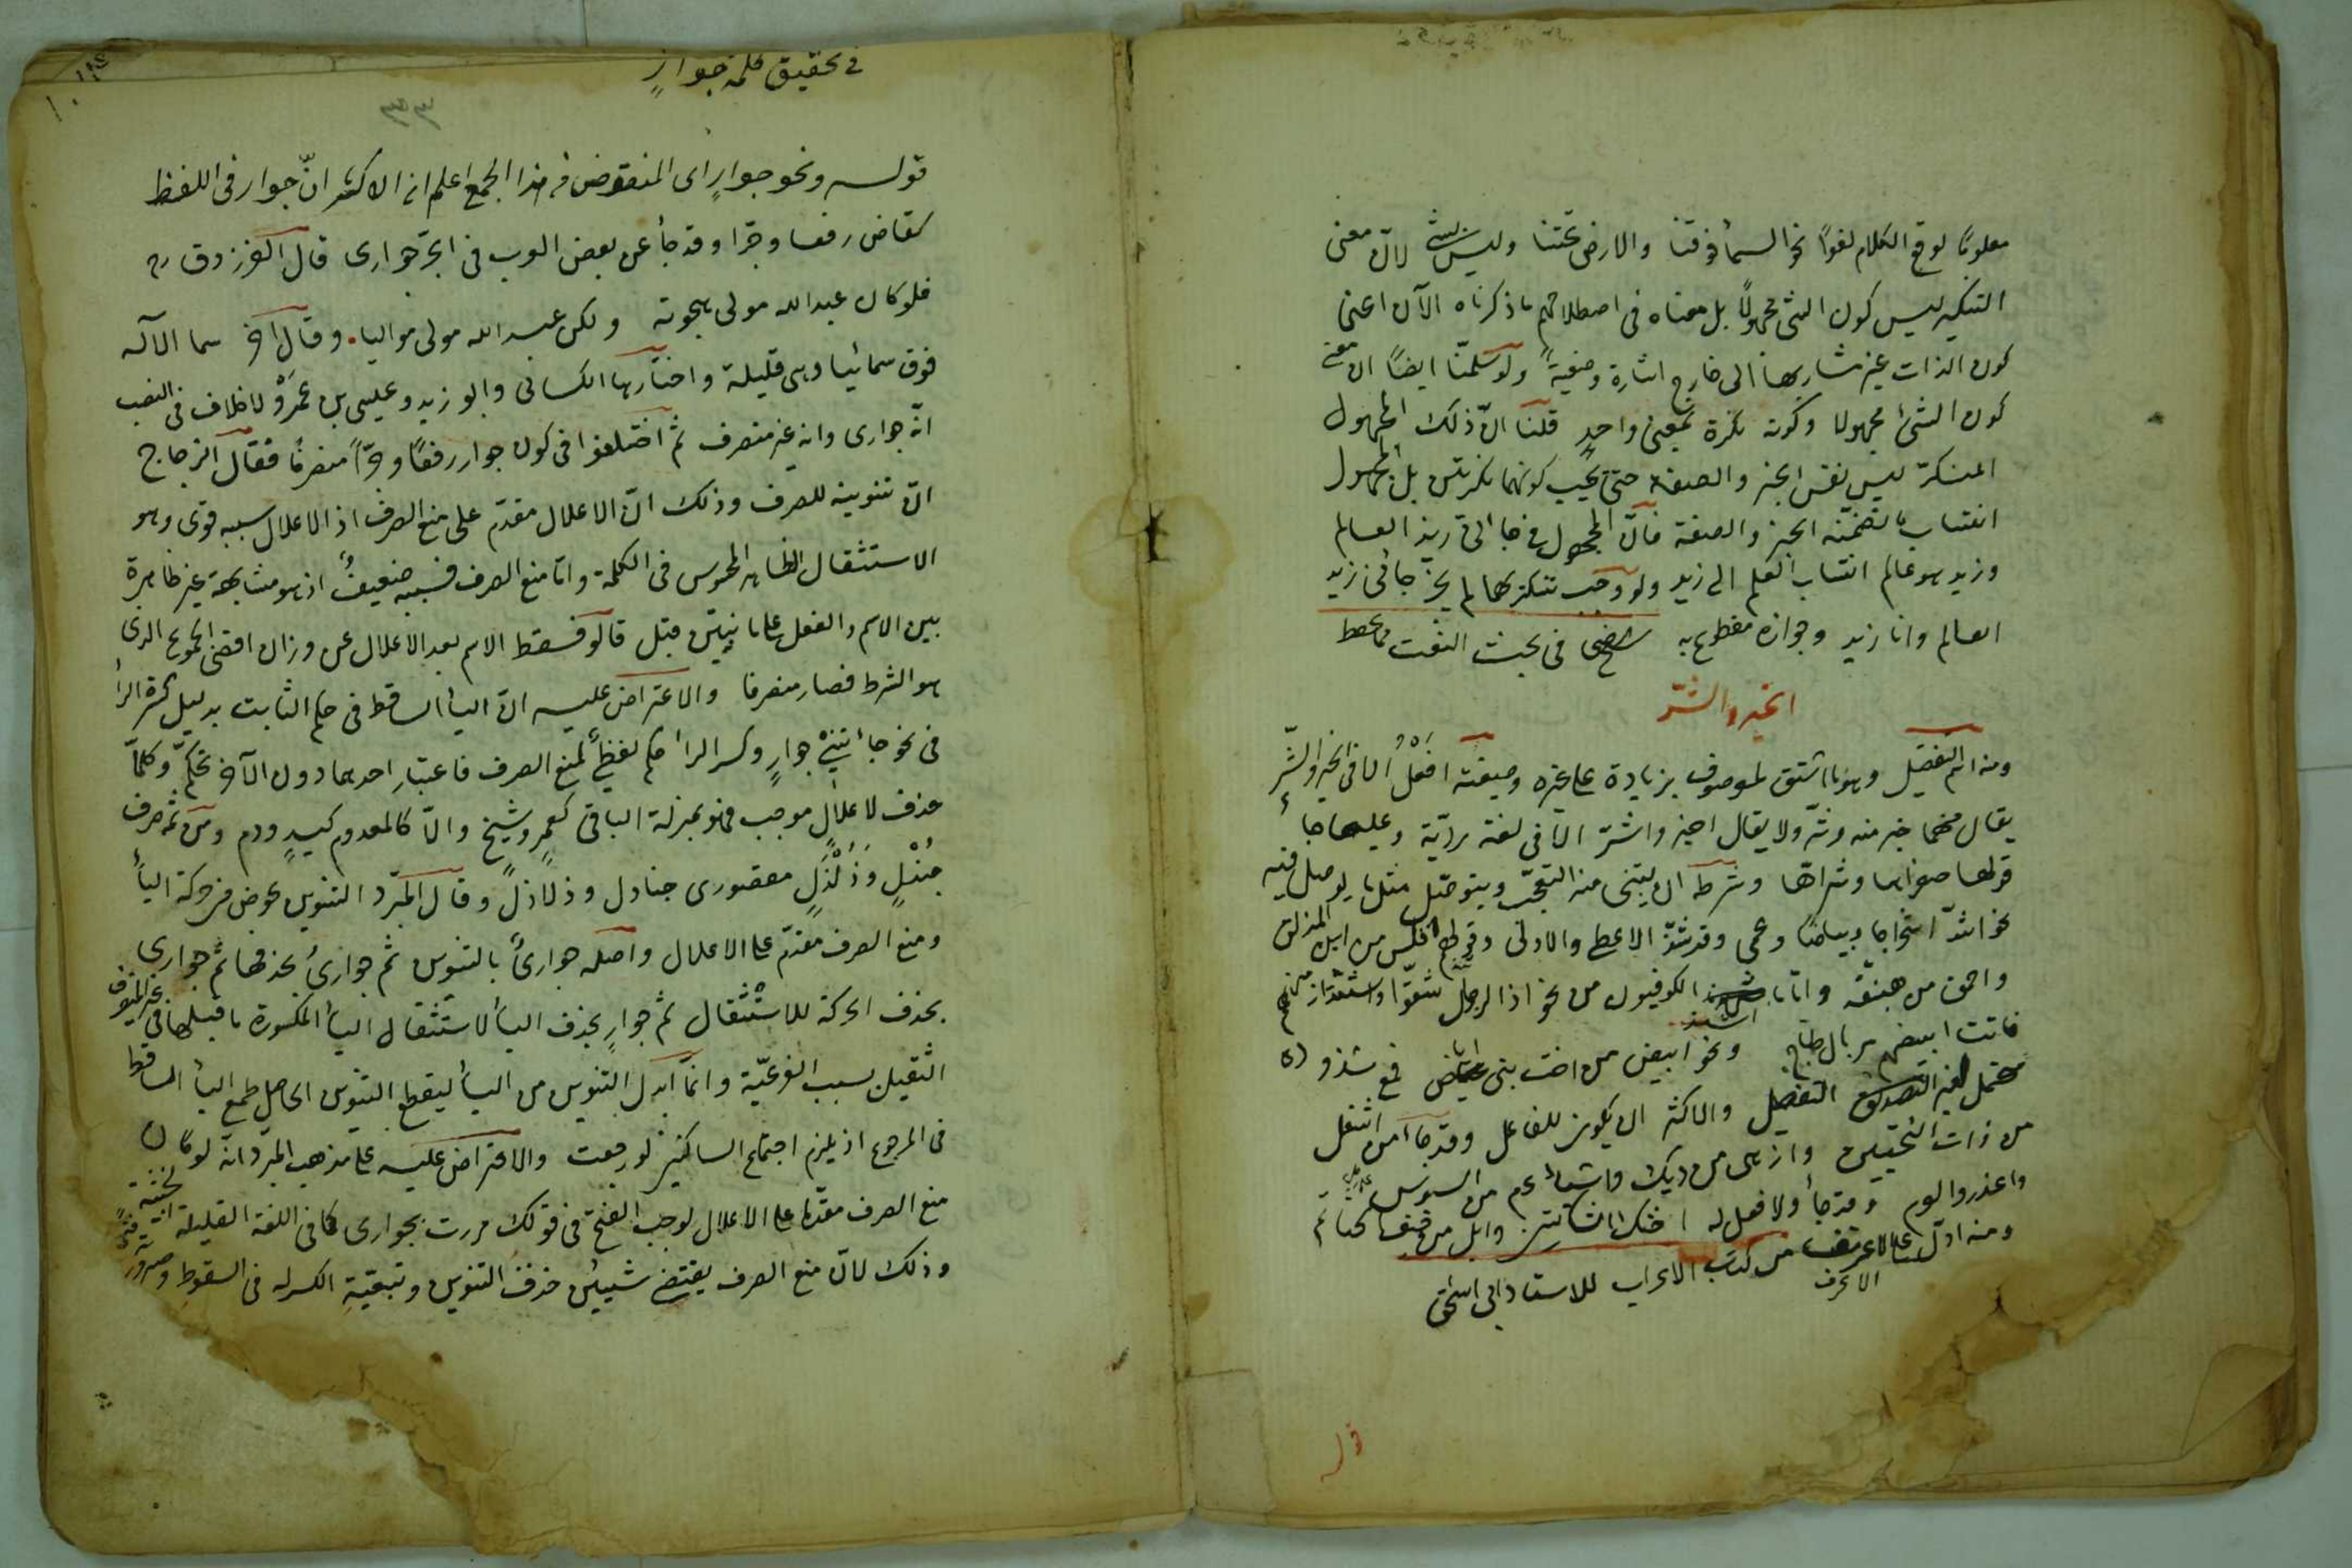 معلومًا لوقع الكلام لغوًا نحو السماء فوقنا والارض تحتنا وليس بشئ لانّ معنى
التنكير ليس كون الشئ مجهولًا بل معناه فى اصطلاحهم ما ذكرناه الآن اعنى
كون الذات غير مشار بها الى خارج اشارة وضعيةً ولو سلمنا ايضًا ان معنى
كون الشئ مجهولا وكونه نكرة بمعنى واحدٍ قلنا انّ ذلك المجهول
المنكر ليس نفس الخبر والصفة حتى يجب كونهما نكرتين بل المجهول
انتساب ما تضمّنه الخبر والصفة فانّ المجهول فى جاءنى زيد العالم
وزيد هو عالم انتساب العلم الى زيد ولو وجب تنكيرهما لم يجز جاءنى زيد
العالم وانا زيد وجوازه مقطوع به شيخ رضى فى بحث النعت
الخير والشّر
ومنه اسم التفضيل وهو ما اشتق لموصوف بزيادة على غيره وصيغته افْعَلُ الا فى الخير والشّرِ
يقال فيهما خير منه وشرّ ولا يقال اخير واشرّ الّا فى لغة رديّة وعليها جاء
قولها صغراها وشراها وشرطه ان يبنى منه التعجّب ويتوصّل بمثل ما يوصل فيه
نحو اشدّ استخراجا وبياضا وعمى وقد شذّ الاعطى والاولى وقولهم افلس من ابن المذلق
واحمق من هبنّقة وامّا ما انشد الكوفيون من نحو اذا الرجال شتوا واشتدّ ازلهم
فانت ابيضهم سربال طباخ ونحو ابيض من اخت بنى اباض فمع شذوذه
محتمل لغير التفضيل والاكثر ان يكون للفاعل وقد جاء من اشغل
من ذات النحيين وازهى من ديك واشهر
واعذر والوم وقد جاء ولا فعل له احنك الشاتين وابل من حنيف الحناتم
ومنه اوّل على الاعرف من كتب الاعراب للاستاد ابى اسحق
قوله
فى تحقيق كلمة جوارٍ
قولـه ونحو جوارٍ اى المنقوض فى هذا الجمع اعلم ان الاكثر انّ جوار فى اللفظ
كقاض رفعا وجرّا وقد جاء عن بعض العرب فى الجرّ جوارى قال الفرزدق
فلو كان عبد الله مولى هجوته ولكن عبد الله مولى مواليا. وقال آخر سما الآله
فوق سمائيا وهى قليلة واختارها الكسائى وابو زيد وعيسى بن عَمْرو لا خلاف فى النصب
انّه جوارى وانه غير منصرف ثمّ اختلفوا فى كون جوار رفعًا وجرًّا منصرفًا فقال الزجاج
انّ تنوينه للصرف وذلك انّ الاعلال مقدّم على منع الصرف اذ الاعلال سببه قوى وهو
الاستثقال الظاهر المحسوس فى الكلمة وامّا منع الصرف فسببه ضعيفٌ اذ هو مشابهة غير ظاهرة
بين الاسم والفعل على ما نبيّن قبل قالوا فسقط الاسم بعد الاعلال عن وزان اقصى الجموع الذى
هو الشرط فصار منصرفا والاعتراض عليه انّ الياء الساقط فى حكم الثابت بدليل كسرة الراء
فى نحو جاءتنى جوارٍ وكسر الراء حكم لفظى كمنع الصرف فاعتبار احدهما دون الآخر تحكّم وكلّما
حذف لاعلالٍ موجب فهو بمنزلة الباقى كعمٍ وشيخ والّا كالمعدوم كيدٍ ودم ومن ثمّ صرف
جَنَدْلٍ وَذَلَذِلٍ مقصورى جنادل وذلاذلٍ وقال المبرّد التنوين عوض من حركة الياء
ومنع الصرف مقدّم على الاعلال واصله جوارىٌ بالتنوين ثم جوارىُ بحذفها ثمّ جوارى
بحذف الحركة للاستثقال ثم جوارٍ بحذف الياء لاستثقال الياء المكسورة ما قبلها فى غير المنصرف
الثقيل بسبب الفرعيّة وانّما ابدل التنوين من الياء ليقطع التنوين الحاصل طمع الياء الساقط
فى الرجوع اذ يلزم اجتماع الساكنين لو رجعت والاعتراض عليه على مذهب المبرّد انه لو كان
منع الصرف مقدّما على الاعلال لوجب الفتح فى قولك مررت بجوارى كما فى اللغة القليلة الخبيثة
وذلك لانّ منع الصرف يقتضى شيئين حذف التنوين وتبعيّة الكسر له فى السقوط وصيرورته فتحًا